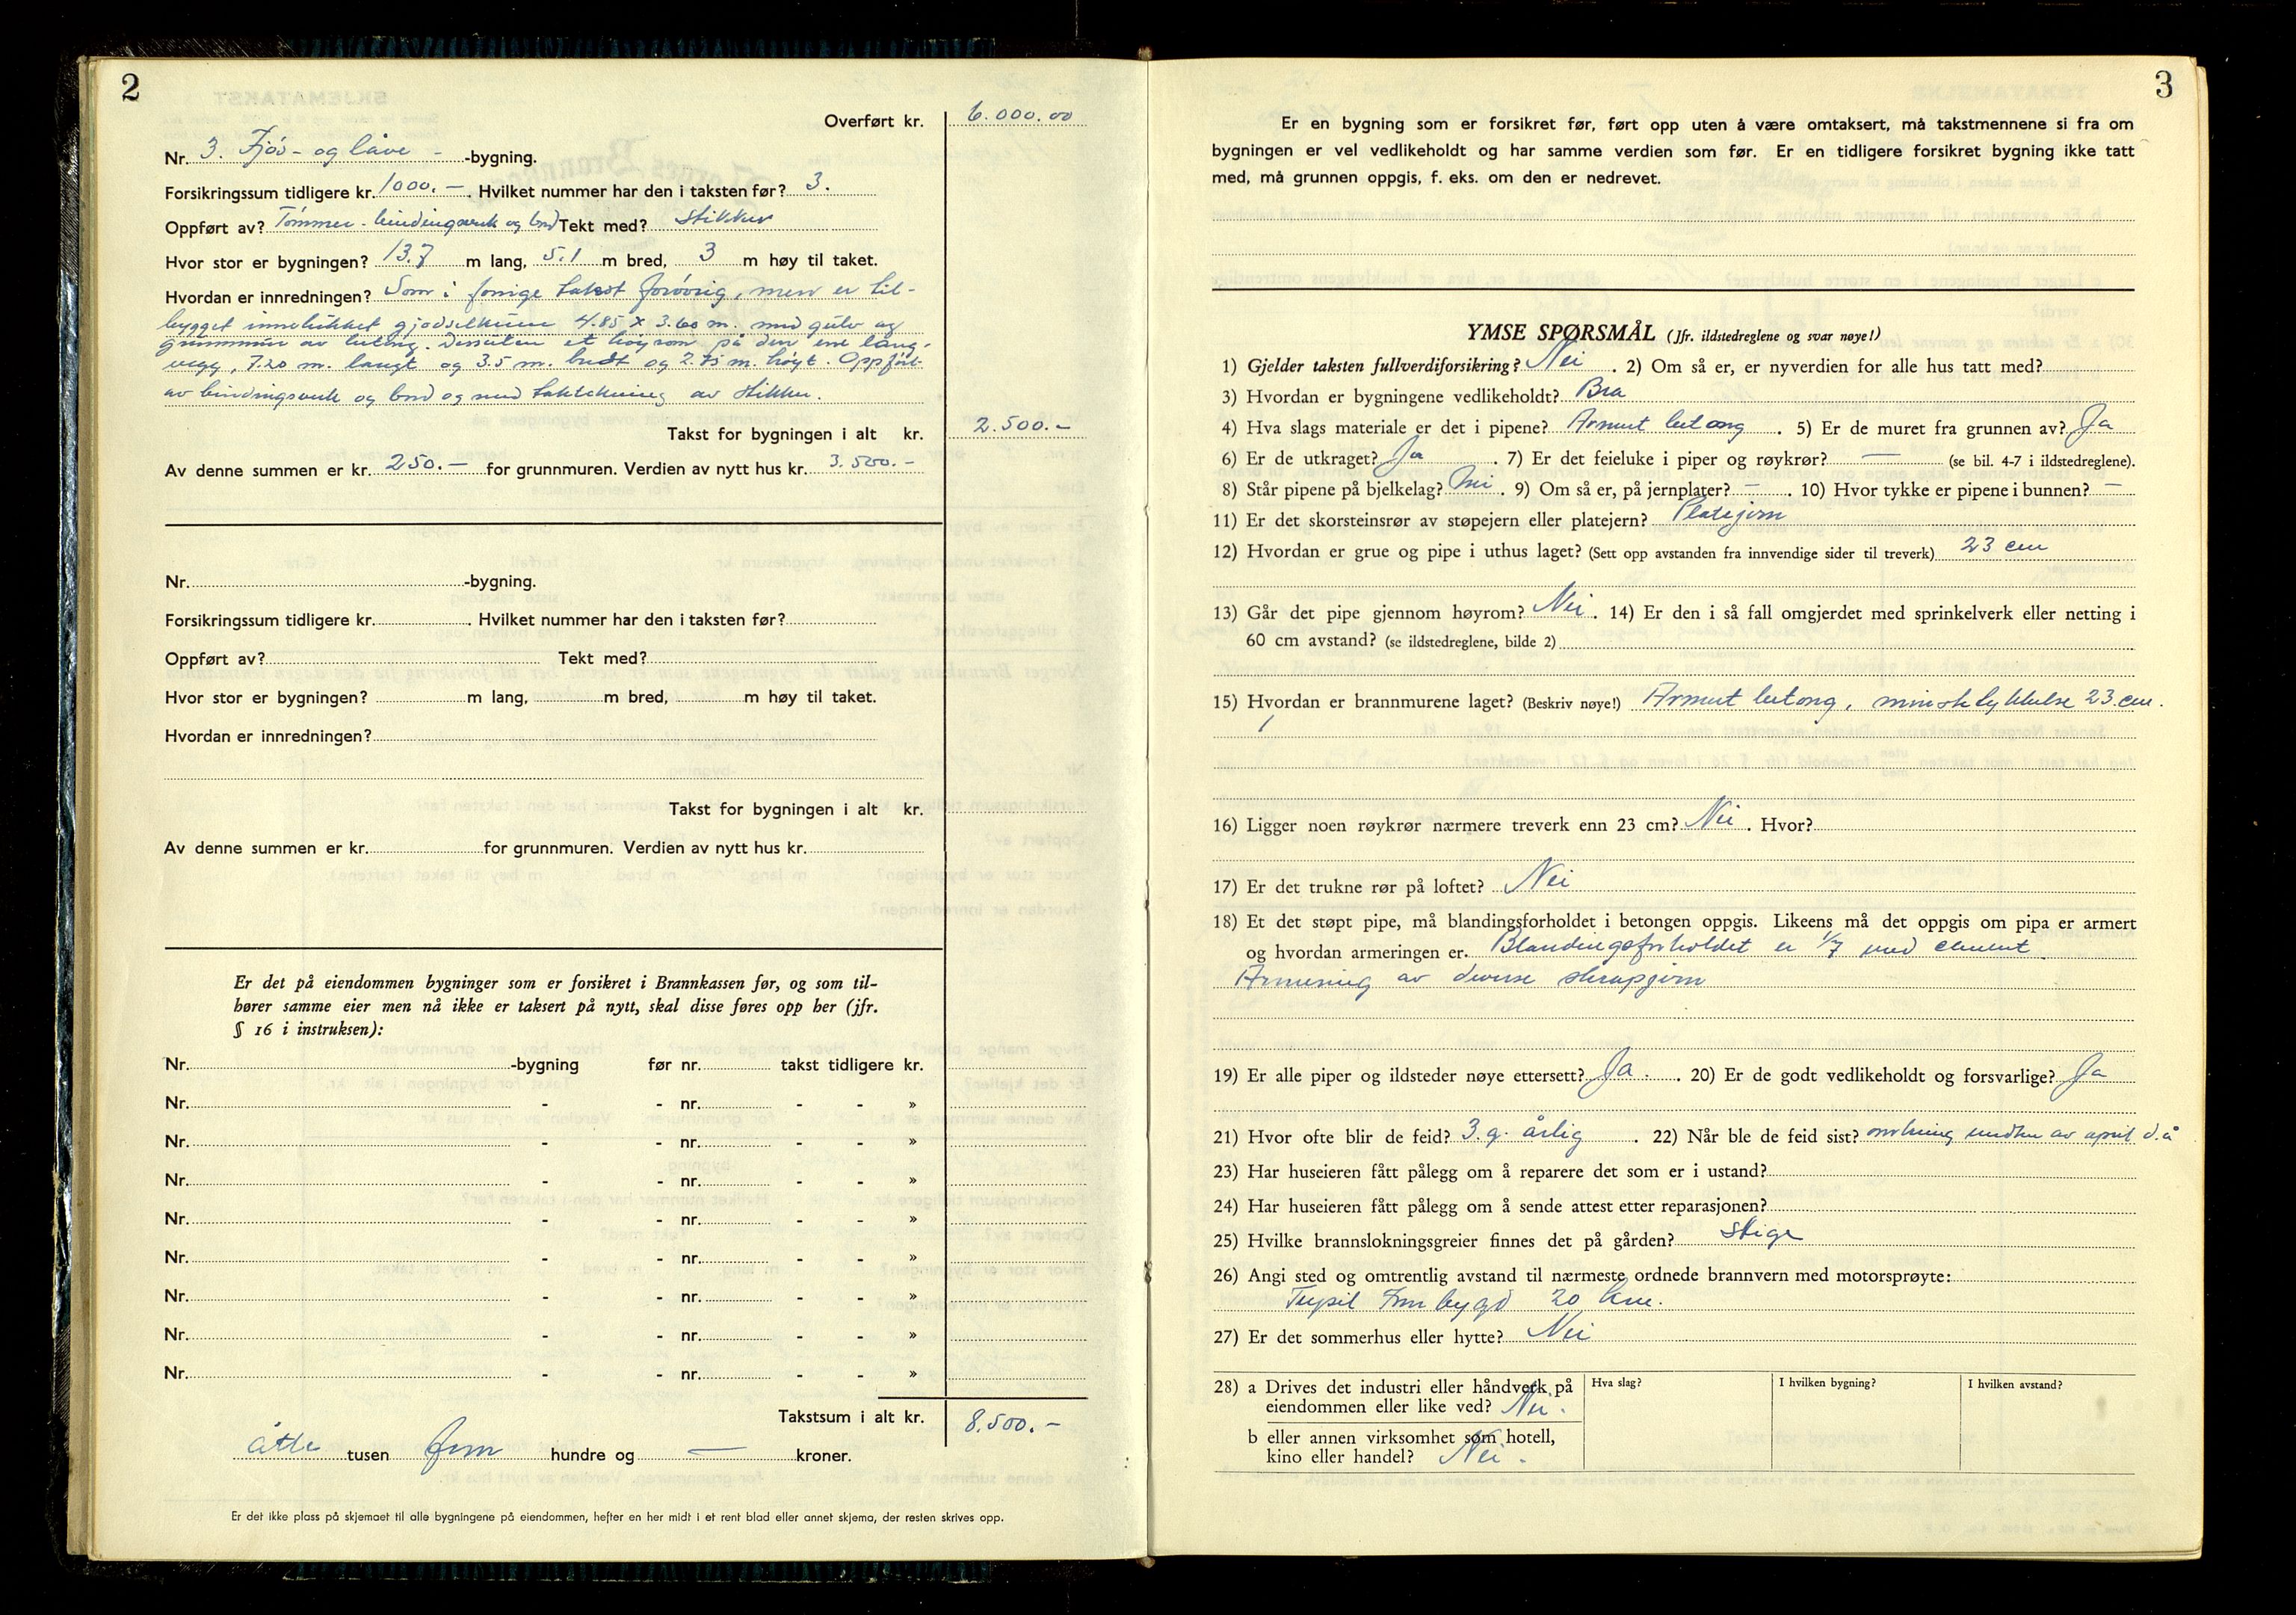 2
Overført kr. 6.000.00
Nr. 3. Fjøs- og låve - -bygning.
Forsikringssum tidligere kr. 1000.- . Hvilket nummer har den i taksten før? 3.
Oppført av? Tømmer- bindingsverk og bord Tekt med? stikker
Hvor stor er bygningen? 13.7 m lang, 5.1 m bred, 3 m høy til taket.
Hvordan er innredningen? Som i forrige takst forøvrig, men er til-
bygget innelukket gjødselkum 4.85 x 3.60 m. med gulv og
grunnmur av betong. Dessuten et høyrom på den ene lang-
vegg, 7.20 m. langt og 3.5 m. bredt og 2.75 m. høyt. Oppført
av bindingsverk og bord og med taktekning av stikker.
Takst for bygningen i alt kr. 2.500.-
Av denne summen er kr. 250.- for grunnmuren. Verdien av nytt hus kr. 3.500.-
Nr. -bygning.
Forsikringssum tidligere kr. . Hvilket nummer har den i taksten før?
Oppført av? Tekt med?
Hvor stor er bygningen? m lang, m bred, m høy til taket.
Hvordan er innredningen?
Takst for bygningen i alt kr.
Av denne summen er kr. for grunnmuren. Verdien av nytt hus kr.
Er det på eiendommen bygninger som er forsikret i Brannkassen før, og som til-
hører samme eier men nå ikke er taksert på nytt, skal disse føres opp her (jfr.
§ 16 i instruksen):
Nr. -bygning før nr. takst tidligere kr.
Nr. - - nr. - - »
Nr. - - nr. - - »
Nr. - - nr. - - »
Nr. - - nr. - - »
Nr. - - nr. - - »
Nr. - - nr. - - »
Nr. - - nr. - - »
Nr. - - nr. - - »
Takstsum i alt kr. 8.500.-
åtte tusen fem hundre og — kroner.
Er det ikke plass på skjemaet til alle bygningene på eiendommen, hefter en her midt i et rent blad eller annet skjema, der resten skrives opp.
3
Er en bygning som er forsikret før, ført opp uten å være omtaksert, må takstmennene si fra om
bygningen er vel vedlikeholdt og har samme verdien som før. Er en tidligere forsikret bygning ikke tatt
med, må grunnen oppgis, f. eks. om den er nedrevet.
YMSE SPØRSMÅL (Jfr. ildstedreglene og svar nøye!)
1) Gjelder taksten fullverdiforsikring? Nei . 2) Om så er, er nyverdien for alle hus tatt med?
3) Hvordan er bygningene vedlikeholdt? Bra
4) Hva slags materiale er det i pipene? Armert betong . 5) Er de muret fra grunnen av? Ja
6) Er de utkraget? Ja . 7) Er det feieluke i piper og røykrør? — (se bil. 4-7 i ildstedreglene).
8) Står pipene på bjelkelag? Nei . 9) Om så er, på jernplater? - . 10) Hvor tykke er pipene i bunnen? —
11) Er det skorsteinsrør av støpejern eller platejern? Platejern
12) Hvordan er grue og pipe i uthus laget? (Sett opp avstanden fra innvendige sider til treverk) 23 cm
13) Går det pipe gjennom høyrom? Nei . 14) Er den i så fall omgjerdet med sprinkelverk eller netting i
60 cm avstand? (se ildstedreglene, bilde 2)
15) Hvordan er brannmurene laget? (Beskriv nøye!) Armert betong, minstetykkelse 23 cm.
16) Ligger noen røykrør nærmere treverk enn 23 cm? Nei . Hvor?
17) Er det trukne rør på loftet? Nei
18) Et det støpt pipe, må blandingsforholdet i betongen oppgis. Likeens må det oppgis om pipa er armert
og hvordan armeringen er. Blandingsforholdet er 1/7 med cement.
Armering av diverse skrapjern
19) Er alle piper og ildsteder nøye ettersett? Ja . 20) Er de godt vedlikeholdt og forsvarlige? Ja
21) Hvor ofte blir de feid? 3 g. årlig . 22) Når ble de feid sist? omkring midten av april d.å
23) Har huseieren fått pålegg om å reparere det som er i ustand?
24) Har huseieren fått pålegg om å sende attest etter reparasjonen?
25) Hvilke brannslokningsgreier finnes det på gården? Stige
26) Angi sted og omtrentlig avstand til nærmeste ordnede brannvern med motorsprøyte:
Trysil Innbygd 20 km.
27) Er det sommerhus eller hytte? Nei
28) a Drives det industri eller håndverk på Hva slag? I hvilken bygning? I hvilken avstand?
eiendommen eller like ved? Nei.
b eller annen virksomhet som hotell,
kino eller handel? Nei.